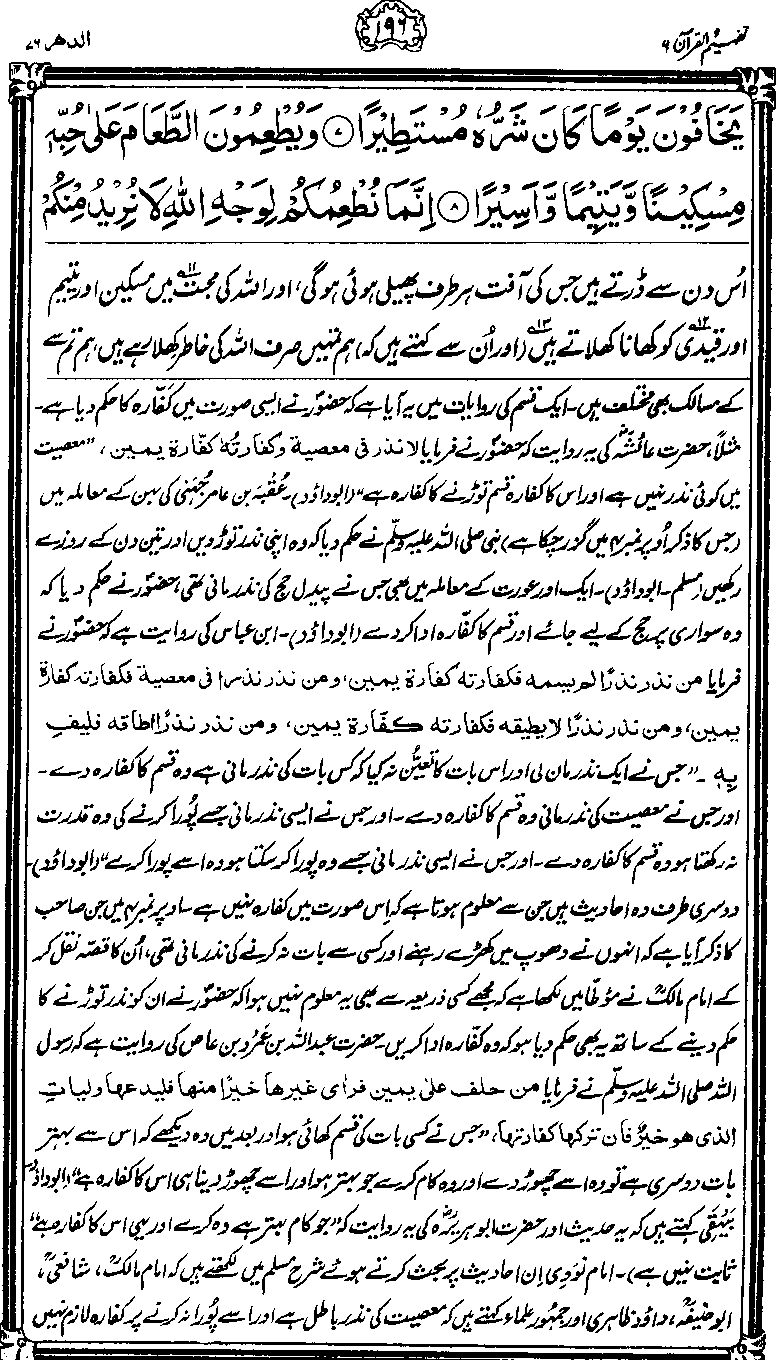 تفہیم القرآن ۶
۱۹۶
الدھر ۷۶
يَخَافُوْنَ يَوْمًا كَانَ شَرُّهٗ مُسْتَطِيْرًا ۝۷ وَيُطْعِمُوْنَ الطَّعَامَ عَلٰى حُبِّهٖ
مِسْكِيْنًا وَّيَتِيْمًا وَّاَسِيْرًا ۝۸ اِنَّمَا نُطْعِمُكُمْ لِوَجْهِ اللّٰهِ لَا نُرِيْدُ مِنْكُمْ
اُس دن سے ڈرتے ہیں جس کی آفت ہر طرف پھیلی ہوئی ہوگی، اور اللہ کی محبت۱۱ میں مسکین اور یتیم
اور قیدی۱۲ کو کھانا کھلاتے ہیں۱۳ (اور اُن سے کہتے ہیں کہ) ہم تمہیں صرف اللہ کی خاطر کھلا رہے ہیں، ہم تم سے
کے مسالک بھی مختلف ہیں۔ ایک قسم کی روایات میں یہ آیا ہے کہ حضورؐ نے ایسی صورت میں کفّارہ کا حکم دیا ہے۔
مثلاً، حضرت عائشہؓ کی یہ روایت کہ حضورؐ نے فرمایا لا نذر فی معصیة وکفارتُہ کفّارة یمین، ”معصیت
میں کوئی نذر نہیں ہے اور اس کا کفارہ قسم توڑنے کا کفارہ ہے“ (ابوداؤد)۔ عُقبہ بن عامر جُہَنِی کی بہن کے معاملہ میں
(جس کا ذکر اُوپر نمبر ۴ میں گزر چکا ہے) نبی صلی اللہ علیہ وسلّم نے حکم دیا کہ وہ اپنی نذر توڑ دیں اور تین دن کے روزے
رکھیں (مسلم۔ ابوداؤد)۔ ایک اور عورت کے معاملہ میں بھی جس نے پیدل حج کی نذر مانی تھی، حضورؐ نے حکم دیا کہ
وہ سواری پر حج کے لیے جائے اور قسم کا کفّارہ ادا کر دے (ابوداؤد)۔ ابن عباس کی روایت ہے کہ حضورؐ نے
فرمایا من نذر نذرًا لم یسمہ فکفارتہ کفارة یمین، ومن نذر نذرا فی معصیة فکفارتہ کفارة
یمین، ومن نذر نذرًا لا یطیقہ فکفارتہ کفّارة یمین، ومن نذر نذرًا اطاقہ فلیفِ
بِہٖ ۔ ”جس نے ایک نذر مان لی اور اس بات کا تعیُّن نہ کیا کہ کس بات کی نذر مانی ہے وہ قسم کا کفارہ دے۔
اور جس نے معصیت کی نذر مانی وہ قسم کا کفارہ دے۔ اور جس نے ایسی نذر مانی جسے پُورا کرنے کی وہ قدرت
نہ رکھتا ہو وہ قسم کا کفارہ دے۔ اور جس نے ایسی نذر مانی جسے وہ پورا کر سکتا ہو وہ اسے پورا کرے“ (ابوداؤد)۔
دوسری طرف وہ احادیث ہیں جن سے معلوم ہوتا ہے کہ اِس صورت میں کفارہ نہیں ہے۔ اوپر نمبر ۴ میں جن صاحب
کا ذکر آیا ہے کہ انہوں نے دھوپ میں کھڑے رہنے اور کسی سے بات نہ کرنے کی نذر مانی تھی، اُن کا قصّہ نقل کر
کے امام مالکؒ نے مؤطّا میں لکھا ہے کہ مجھے کسی ذریعہ سے بھی یہ معلوم نہیں ہوا کہ حضورؐ نے ان کو نذر توڑنے کا
حکم دینے کے ساتھ یہ بھی حکم دیا ہو کہ وہ کفّارہ ادا کریں۔ حضرت عبداللہ بن عَمْرو بن عاص کی روایت ہے کہ رسول
اللہ صلی اللہ علیہ وسلّم نے فرمایا من حلف علیٰ یمین فرأی غیرھا خیرًا منھا فلیدعھا ولیاتِ
الذی ھو خیرٌ فان ترکھا کفارتھا، ”جس نے کسی بات کی قسم کھائی ہو اور بعد میں وہ دیکھے کہ اس سے بہتر
بات دوسری ہے تو وہ اسے چھوڑ دے اور وہ کام کرے جو بہتر ہو اور اسے چھوڑ دینا ہی اس کا کفارہ ہے“ (ابوداؤد)
بَیْہَقی کہتے ہیں کہ یہ حدیث اور حضرت ابو ہریرہؓ کی یہ روایت کہ ”جو کام بہتر ہے وہ کرے اور یہی اس کا کفارہ ہے“
ثابت نہیں ہے)۔ امام نوَوِی اِن احادیث پر بحث کرتے ہوئے شرح مسلم میں لکھتے ہیں کہ امام مالکؒ، شافعیؒ،
ابوحنیفہؒ، داؤد ظاہری اور جمہور علماء کہتے ہیں کہ معصیت کی نذر باطل ہے اور اسے پُورا نہ کرنے پر کفارہ لازم نہیں